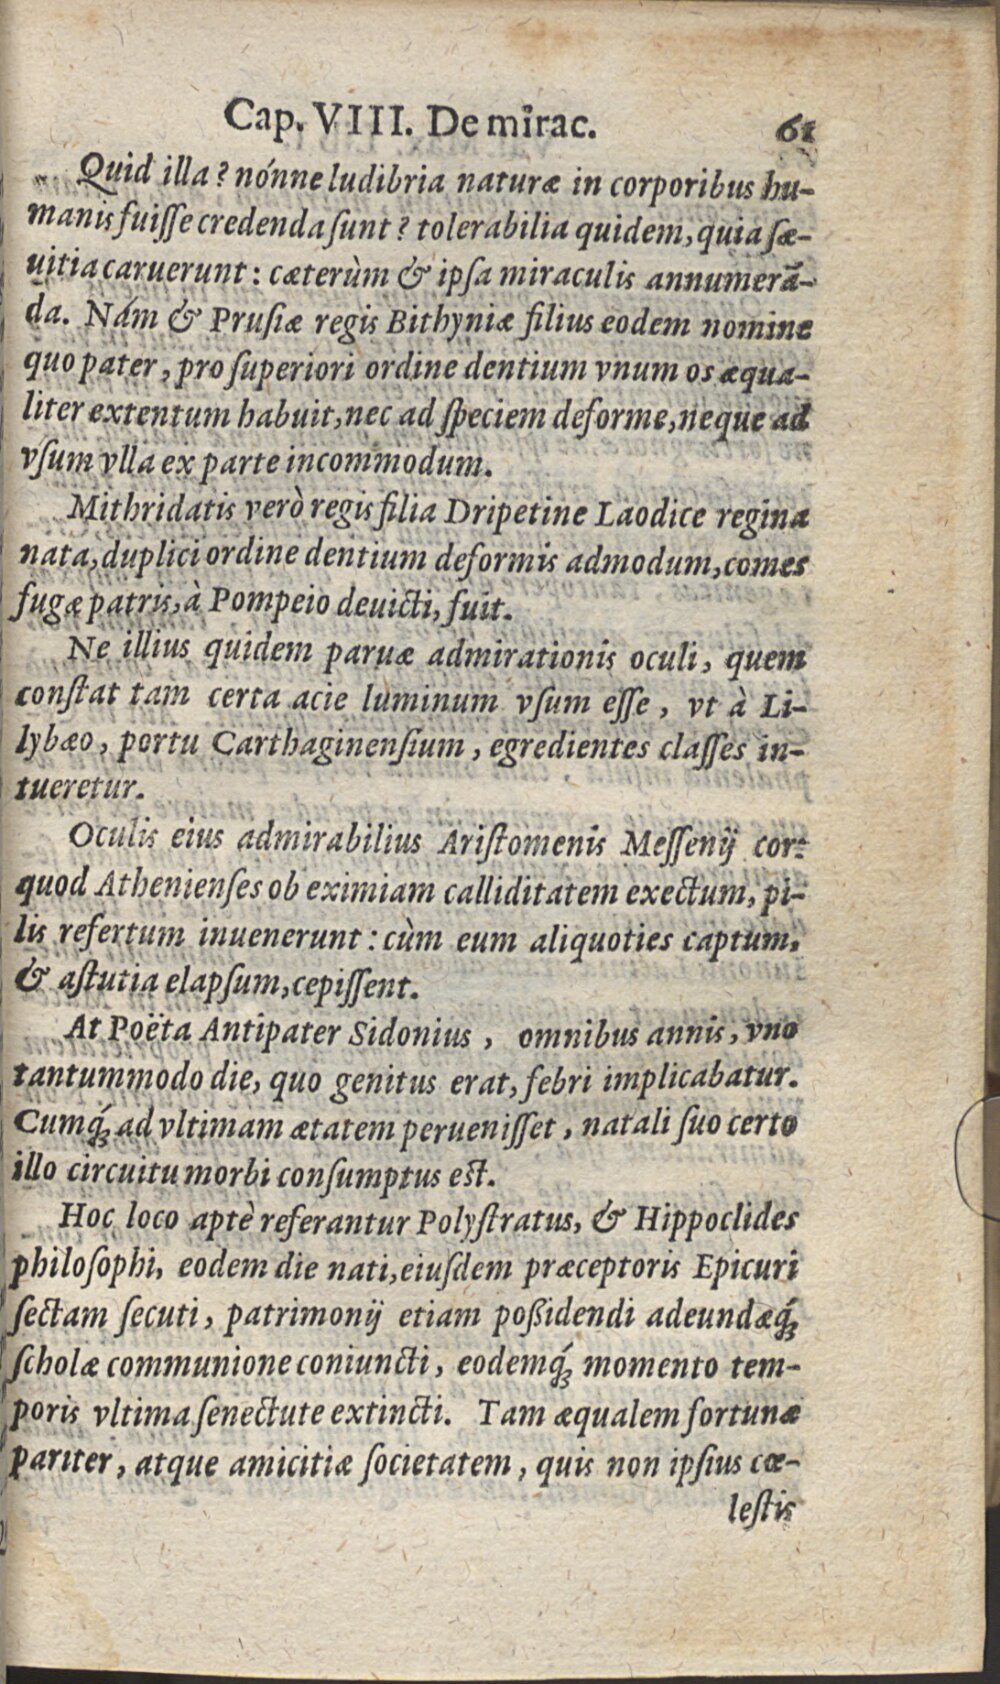 Cap. VIII. De mirac. 61
Quid illa? nónne ludibria naturæ in corporibus hu-
manis fuiſſe credenda ſunt? tolerabilia quidem, quia ſæ-
uitia caruerunt: cæterùm & ipſa miraculis annumerā-
da. Nám & Pruſiæ regis Bithyniæ filius eodem nomine
quo pater, pro ſuperiori ordine dentium vnum os æqua-
liter extentum habuit, nec ad ſpeciem deforme, neque ad
vſum vlla ex parte incommodum.
Mithridatis verò regis filia Dripetine Laodice regina
nata, duplici ordine dentium deformis admodum, comes
fugæ patris, à Pompeio deuicti, fuit.
Ne illius quidem paruæ admirationis oculi, quem
conſtat tam certa acie luminum vſum eſſe, vt à Li-
lybæo, portu Carthaginenſium, egredientes claſſes in-
tueretur.
Oculis eius admirabilius Ariſtomenis Meſſenij cor:
quod Athenienſes ob eximiam calliditatem exectum, pi-
lis refertum inuenerunt: cùm eum aliquoties captum,
& aſtutia elapſum, cepiſſent.
At Poëta Antipater Sidonius, omnibus annis, vno
tantummodo die, quo genitus erat, febri implicabatur.
Cumq́; ad vltimam ætatem perueniſſet, natali ſuo certo
illo circuitu morbi conſumptus eſt.
Hoc loco aptè referantur Polyſtratus, & Hippoclides
philoſophi, eodem die nati, eiuſdem præceptoris Epicuri
ſectam ſecuti, patrimonij etiam poßidendi adeundæq́;
ſcholæ communione coniuncti, eodemq́; momento tem-
poris vltima ſenectute extincti. Tam æqualem fortunæ
pariter, atque amicitiæ ſocietatem, quis non ipſius cœ-
leſtis